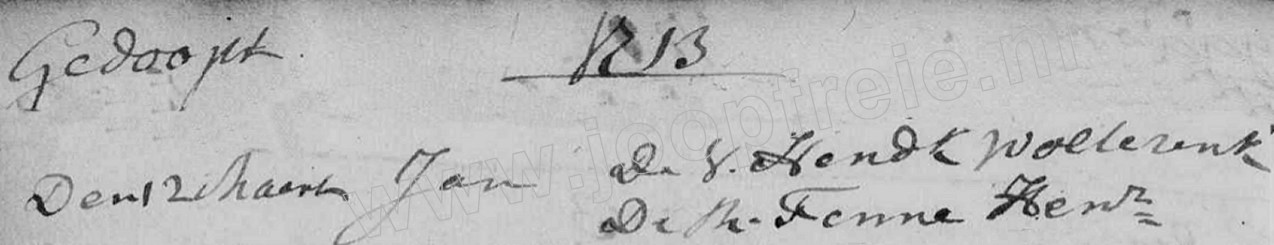 Gedoopt 1713
Den 12 Maert Jan De V. Hendk Wolterink
De M. Fenne Hendr
www.joopfreie.nl